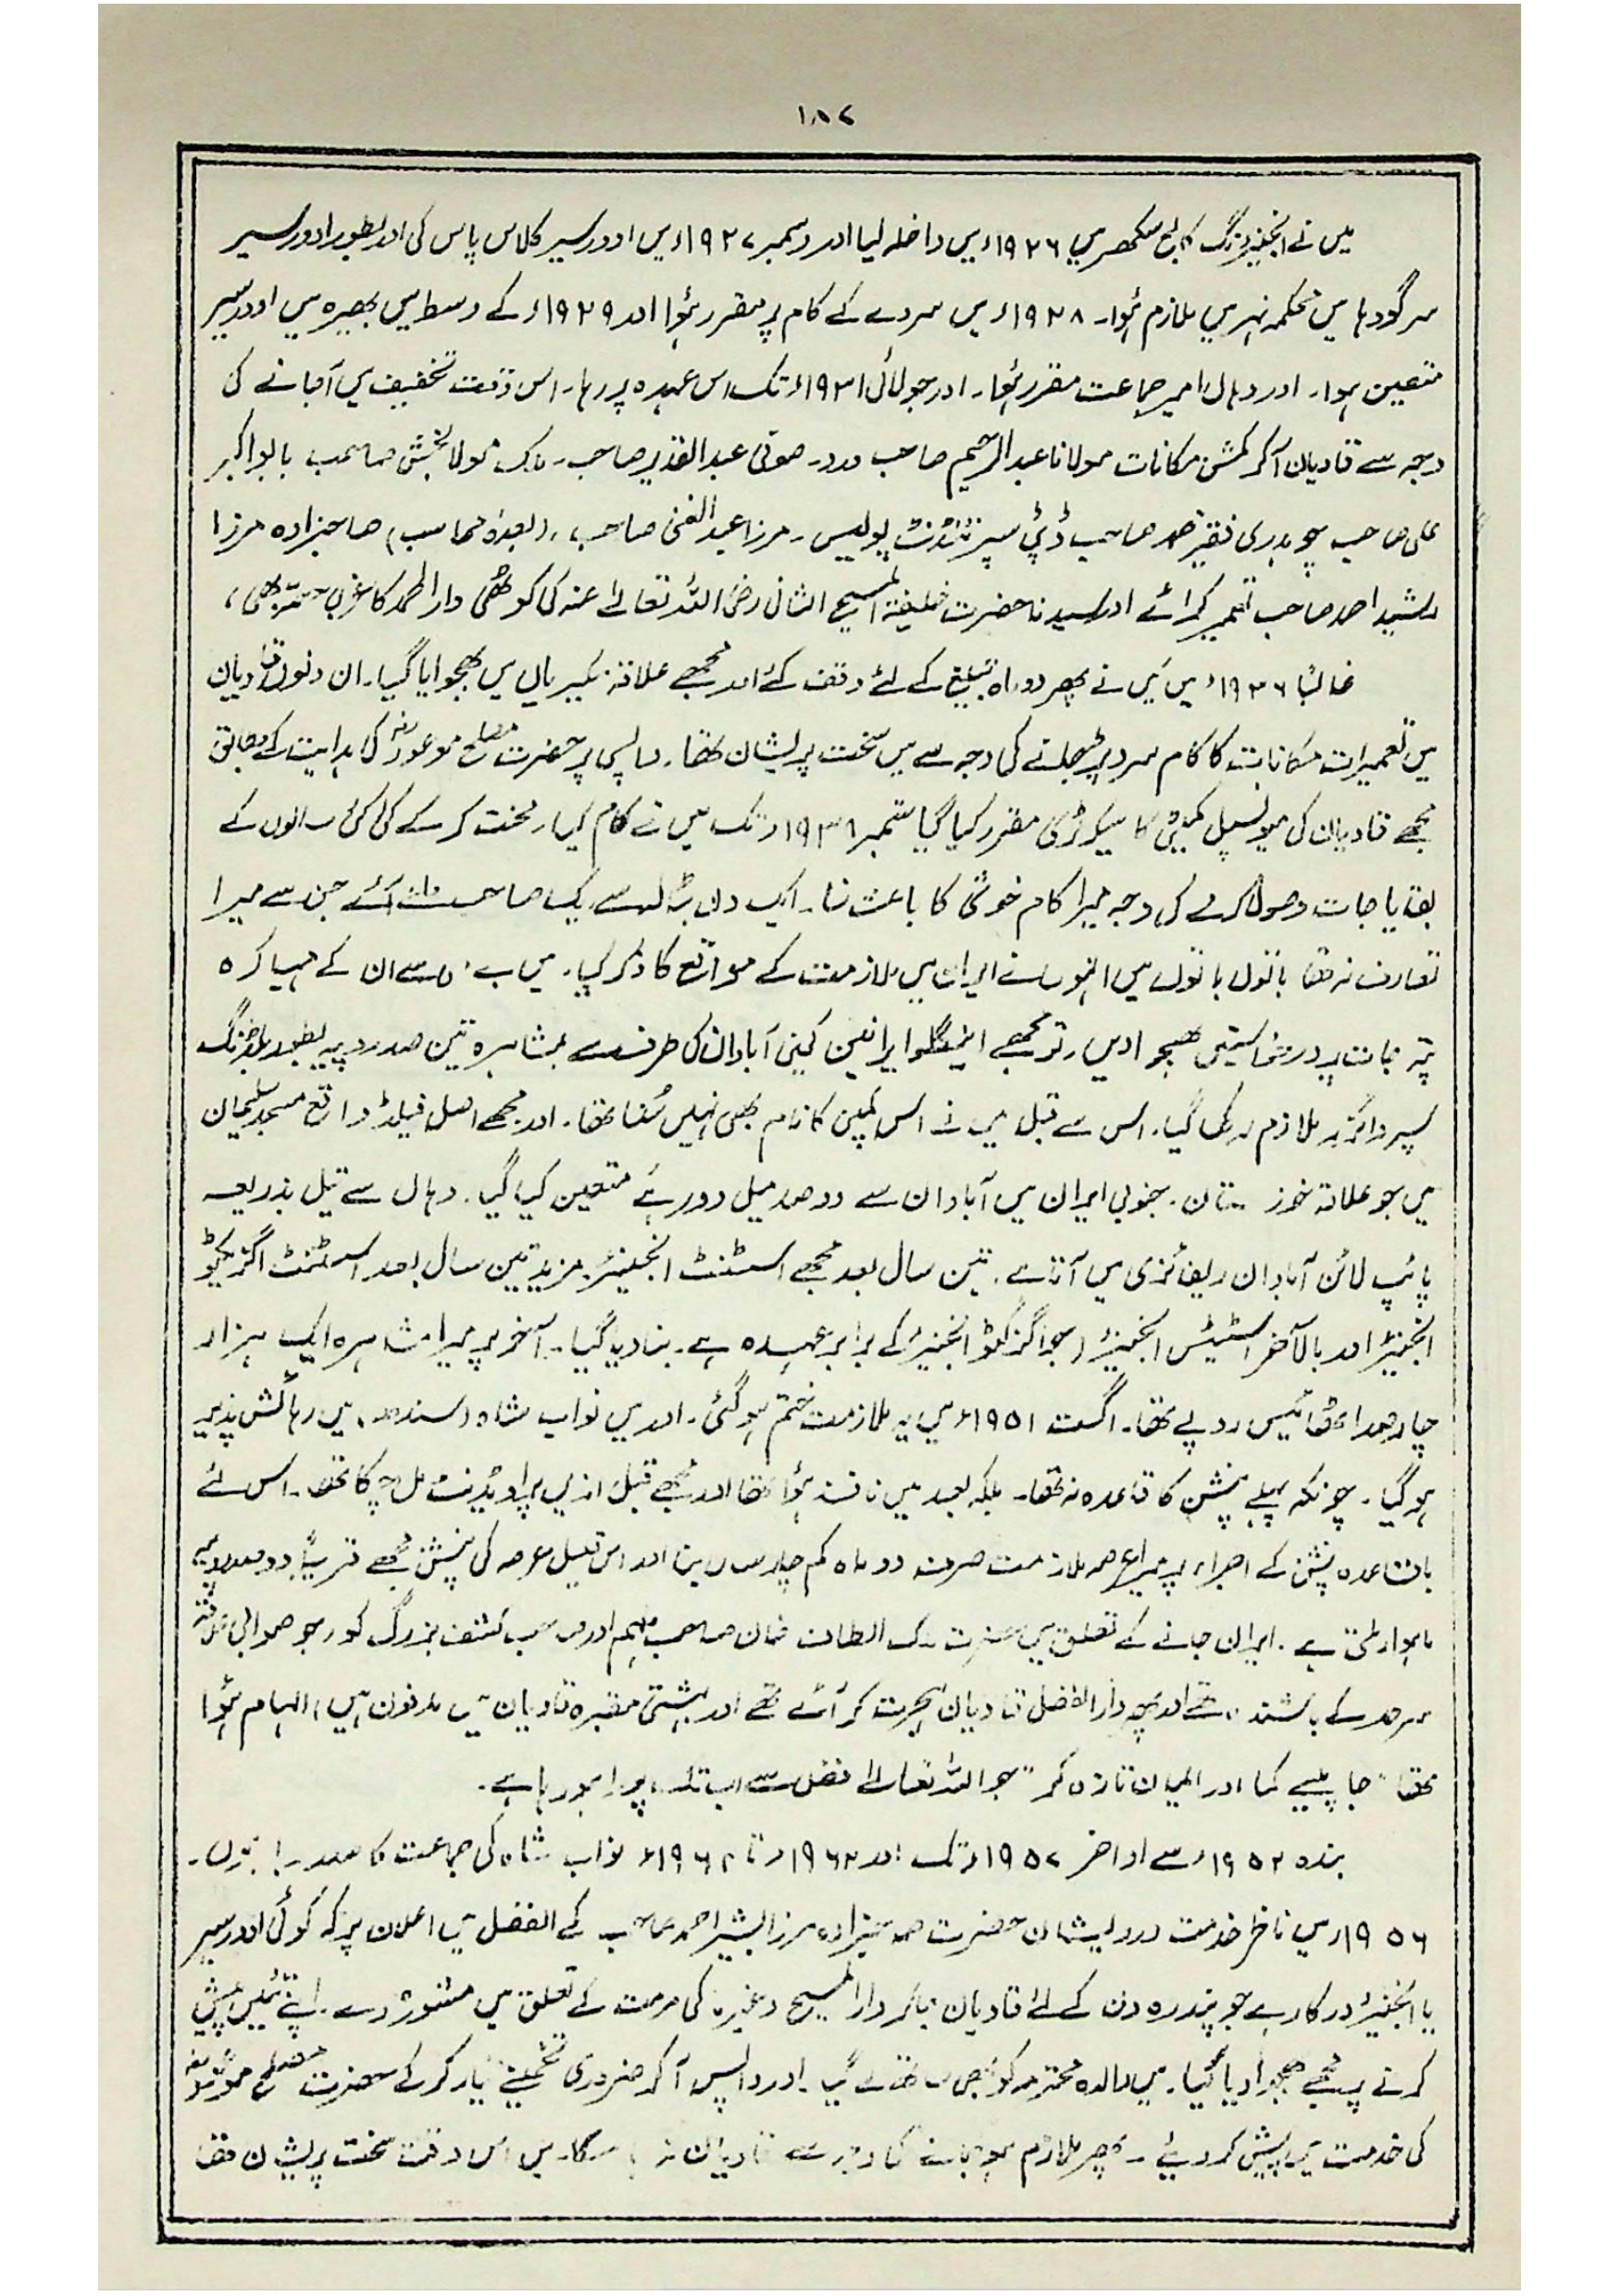 ۱۸۲
میں نے انجنیئرنگ کالج سکھر میں ۱۹۲۶ء میں داخلہ لیا اور دسمبر ۱۹۲۷ء میں اوورسیر کلاس پاس کی اور بطور اوورسیر
سرگودہا میں محکمہ نہر میں ملازم ہؤا۔ ۱۹۲۸ء میں سروے کے کام پر مقرر ہؤا اور ۱۹۲۹ء کے وسط میں بھیرہ میں اوورسیر
متعین ہوا۔ اور وہاں امیر جماعت مقرر ہؤا۔ اور جولائی ۱۹۳۱ء تک اس عہدہ پر رہا۔ اس وقت تخفیف میں آجانے کی
وجہ سے قادیان آکر کمشن مکانات مولانا عبدالرحیم صاحب درد۔ صوفی عبدالقدیر صاحب۔ ملک مولا بخش صاحب بابو اکبر
علی صاحب چوہدری فقیر محمد صاحب ڈپٹی سپرنٹنڈنٹ پولیس۔ مرزا عبدالغنی صاحب، (بعدہٗ محاسب) صاحبزادہ مرزا
رشید احمد صاحب تعمیر کرائے اور سیدنا حضرت خلیفۃ المسیح الثانی رضی اللہ تعالیٰ عنہ کی کوٹھی دارالحمد کا غربی حصہ بھی،
غالباً ۱۹۳۶ء میں میں نے پھر دو ماہ تبلیغ کے لئے وقف کئے اور مجھے علاقہ مکیریاں میں بھجوایا گیا۔ ان دنوں قادیان
میں تعمیرات مکانات کا کام سرد پڑ جانے کی وجہ سے میں سخت پریشان تھا۔ واپسی پر حضرت مصلح موعودؓ کی ہدایت کے مطابق
مجھے قادیان کی میونسپل کمیٹی کا سیکرٹری مقرر کیا گیا ستمبر ۱۹۳۸ء تک میں نے کام کیا۔ محنت کر کے کئی کئی سالوں کے
بقایا جات وصول کرنے کی وجہ میرا کام خوشی کا باعث تھا۔ ایک دن بٹالہ سے ایک صاحب ملنے آئے جن سے میرا
تعارف نہ تھا باتوں باتوں میں انہوں نے ایران میں ملازمت کے مواقع کا ذکر کیا۔ میں نے ان کے مہیا کردہ
پتہ جات پر درخواستیں بھجوا دیں۔ تو مجھے اینگلو ایرانین کمپنی آبادان کی طرف سے بمشاہرہ تین صد روپیہ بطور بلڈنگ
سپروائزر ملازم رکھا گیا۔ اس سے قبل میں نے اس کمپنی کا نام بھی نہیں سنا تھا۔ اور مجھے اصل فیلڈ واقع مسجد سلیمان
میں جو علاقہ خوزستان۔ جنوبی ایران میں آبادان سے دو صد میل دور ہے متعین کیا گیا۔ وہاں سے تیل بذریعہ
پائپ لائن آبادان ریفائنری میں آتا ہے۔ تین سال بعد مجھے اسسٹنٹ انجنیئر۔ مزید تین سال بعد اسسٹنٹ اگزیکٹو
انجنیئر اور بالآخر اسٹیٹس انجنیئر (جو اگزکٹو انجنیئر کے برابر عہدہ ہے۔ بنا دیا گیا۔ آخر پر میرا مشاہرہ ایک ہزار
چار صد اٹھائیس روپے تھا۔ اگست ۱۹۵۱ء میں یہ ملازمت ختم ہو گئی۔ اور میں نواب شاہ (سندھ) میں رہائش پذیر
ہو گیا۔ چونکہ پہلے پنشن کا قاعدہ نہ تھا۔ بلکہ بعد میں نافذ ہؤا تھا اور مجھے قبل ازیں پراویڈنٹ مل چکا تھا۔ اس لئے
باقاعدہ پنشن کے اجراء پر میرا عرصہ ملازمت صرف دو ماہ کم چار سال بنا اور اس قلیل عرصہ کی پنشن مجھے قریباً دو صد روپیہ
ماہوار ملتی ہے۔ ایران جانے کے تعلق میں حضرت ملک الطاف خان صاحب ملہم اور صاحب کشف بزرگ کو (جو صوابی علاقہ
سرحد کے باشندہ تھے اور پھر دارالفضل قادیان ہجرت کر آئے تھے اور بہشتی مقبرہ قادیان میں مدفون ہیں) الہام ہؤا
تھا ”جا پیسے کما اور ایمان تازہ کر“ جو اللہ تعالیٰ فضل سے اب تک پورا ہو رہا ہے۔
بندہ ۱۹۵۲ء سے اواخر ۱۹۵۷ء تک اور ۱۹۶۳ء تا ۱۹۶۴ء نواب شاہ کی جماعت کا صدر رہا ہوں۔
۱۹۵۶ء میں ناظر خدمت درویشان حضرت صاحبزادہ مرزا بشیر احمد صاحب کے الفضل میں اعلان پر کہ کوئی اوورسیر
یا انجنیئر درکار ہے جو پندرہ دن کے لئے قادیان جا کر دارالمسیح وغیرہ کی مرمت کے تعلق میں مشورہ دے۔ اپنے تئیں پیش
کرنے پر مجھے بھجوا دیا گیا۔ میں والدہ محترمہ کو بھی ساتھ لے گیا۔ اور واپس آ کر ضروری تخمینے تیار کر کے حضرت مصلح موعودؓ
کی خدمت میں پیش کر دیئے۔ پھر ملازم ہو جانے کی وجہ سے قادیان نہ جا سکا۔ میں اس وقت سخت پریشان تھا